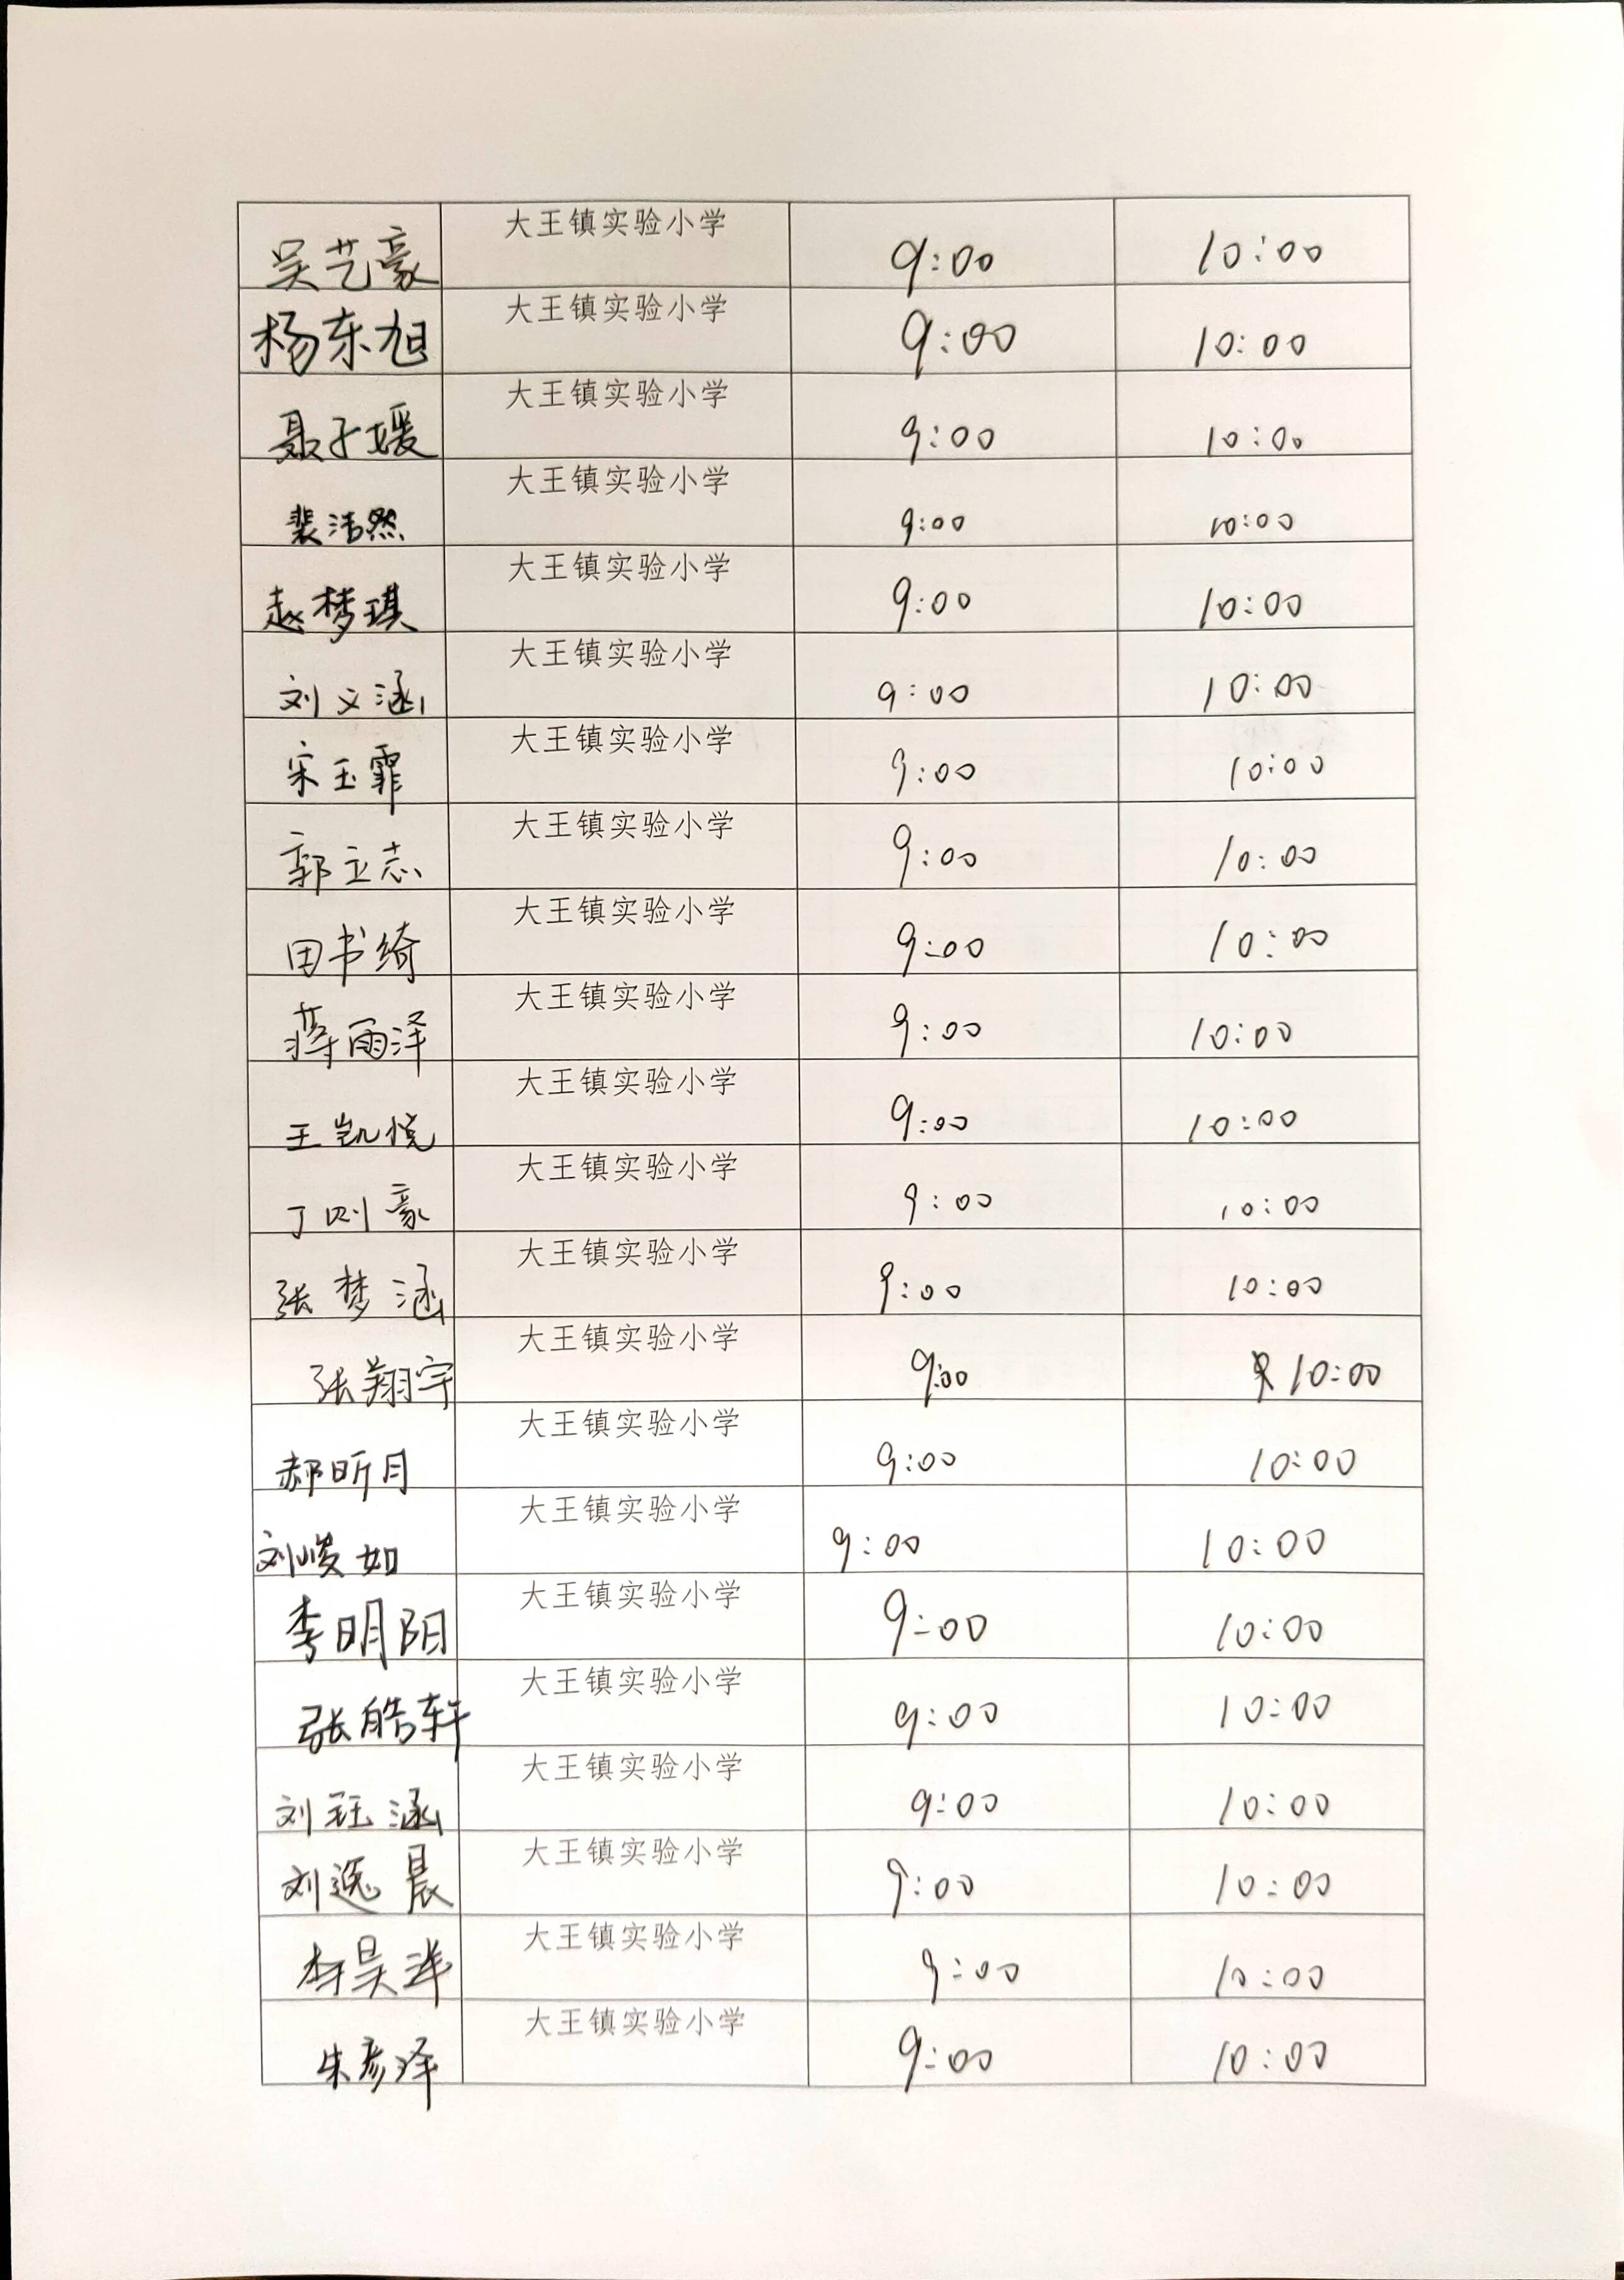 吴艺豪 大王镇实验小学 9:00 10:00
杨东旭 大王镇实验小学 9:00 10:00
聂子媛 大王镇实验小学 9:00 10:00
裴浩然 大王镇实验小学 9:00 10:00
赵梦琪 大王镇实验小学 9:00 10:00
刘义涵 大王镇实验小学 9:00 10:00
宋玉霏 大王镇实验小学 9:00 10:00
郭立志 大王镇实验小学 9:00 10:00
田书绮 大王镇实验小学 9:00 10:00
蒋雨泽 大王镇实验小学 9:00 10:00
王凯悦 大王镇实验小学 9:00 10:00
丁则豪 大王镇实验小学 9:00 10:00
张梦涵 大王镇实验小学 9:00 10:00
张翔宇 大王镇实验小学 9:00 10:00
郝昕月 大王镇实验小学 9:00 10:00
刘峻如 大王镇实验小学 9:00 10:00
李明阳 大王镇实验小学 9:00 10:00
张皓轩 大王镇实验小学 9:00 10:00
刘钰涵 大王镇实验小学 9:00 10:00
刘逸晨 大王镇实验小学 9:00 10:00
大王镇实验小学 9:00 10:00
朱彦泽 大王镇实验小学 9:00 10:00